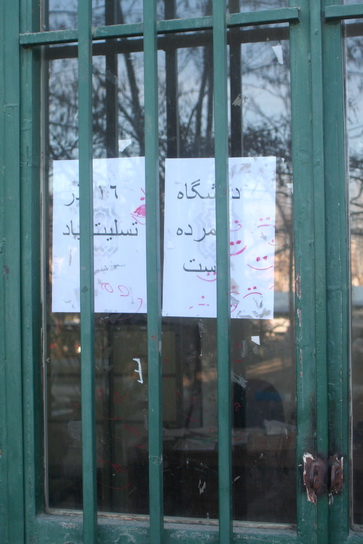 دانشگاه
مرده
است
۱۶ آذر
تسلیت باد